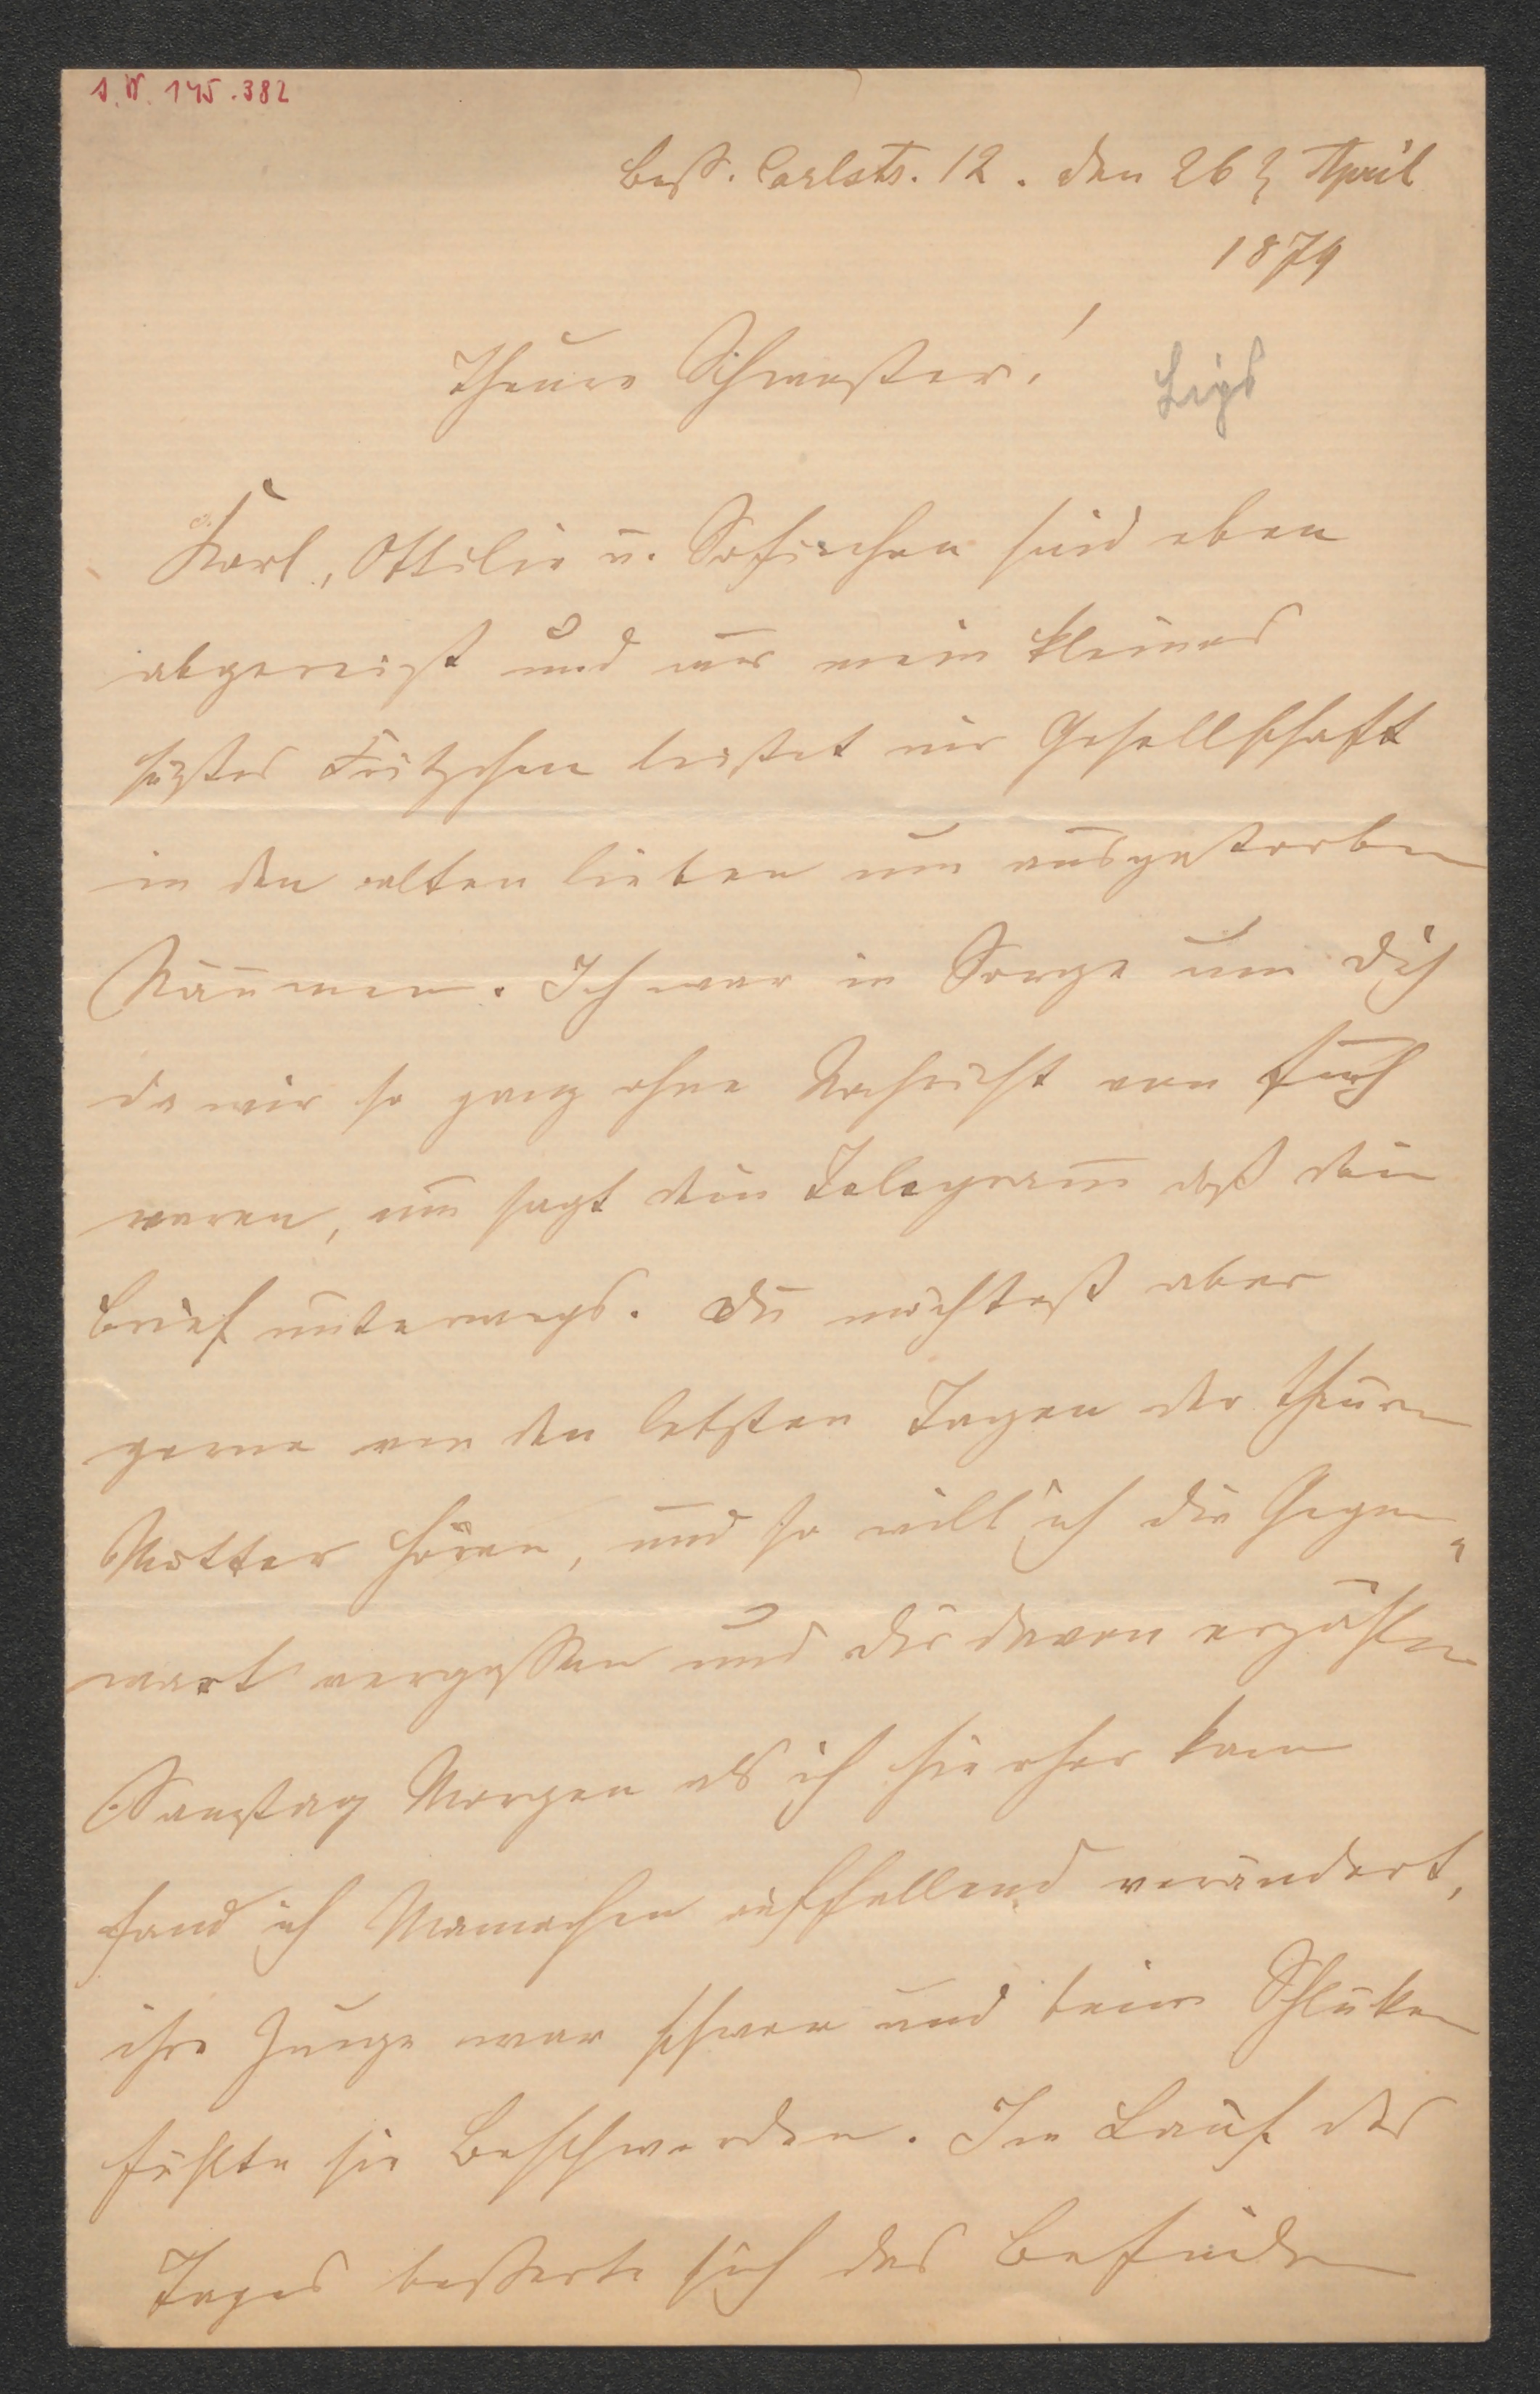 I.N. 145.382
Bess. Carlstr. 12. den 26 April
1879
Theure Schwester!
Karl, Ottilie u. Sofiechen sind eben
abgereist und nur mein kleines
süßes Fritzchen leistet mir Gesellschaft
in den alten lieben nun ausgestorben
Räumen. Ich war in Sorge um dich
da wir so ganz ohne Nachricht von Euch
waren, nun sagt dein Telegram̅ daß dein
Brief unterwegs. Du möchtest aber
gerne von den letzten Tagen der theuren
Mutter hören, und so will ich die Gegen-
wart vergessen und dir davon erzählen
Samstag Morgen als ich hierher kam
fand ich Mamachen auffallend verändert,
ihre Zunge war schwer und beim Schluken
fühlte sie Beschwerden. Im Lauf des
Tages besserte sich das Befinden